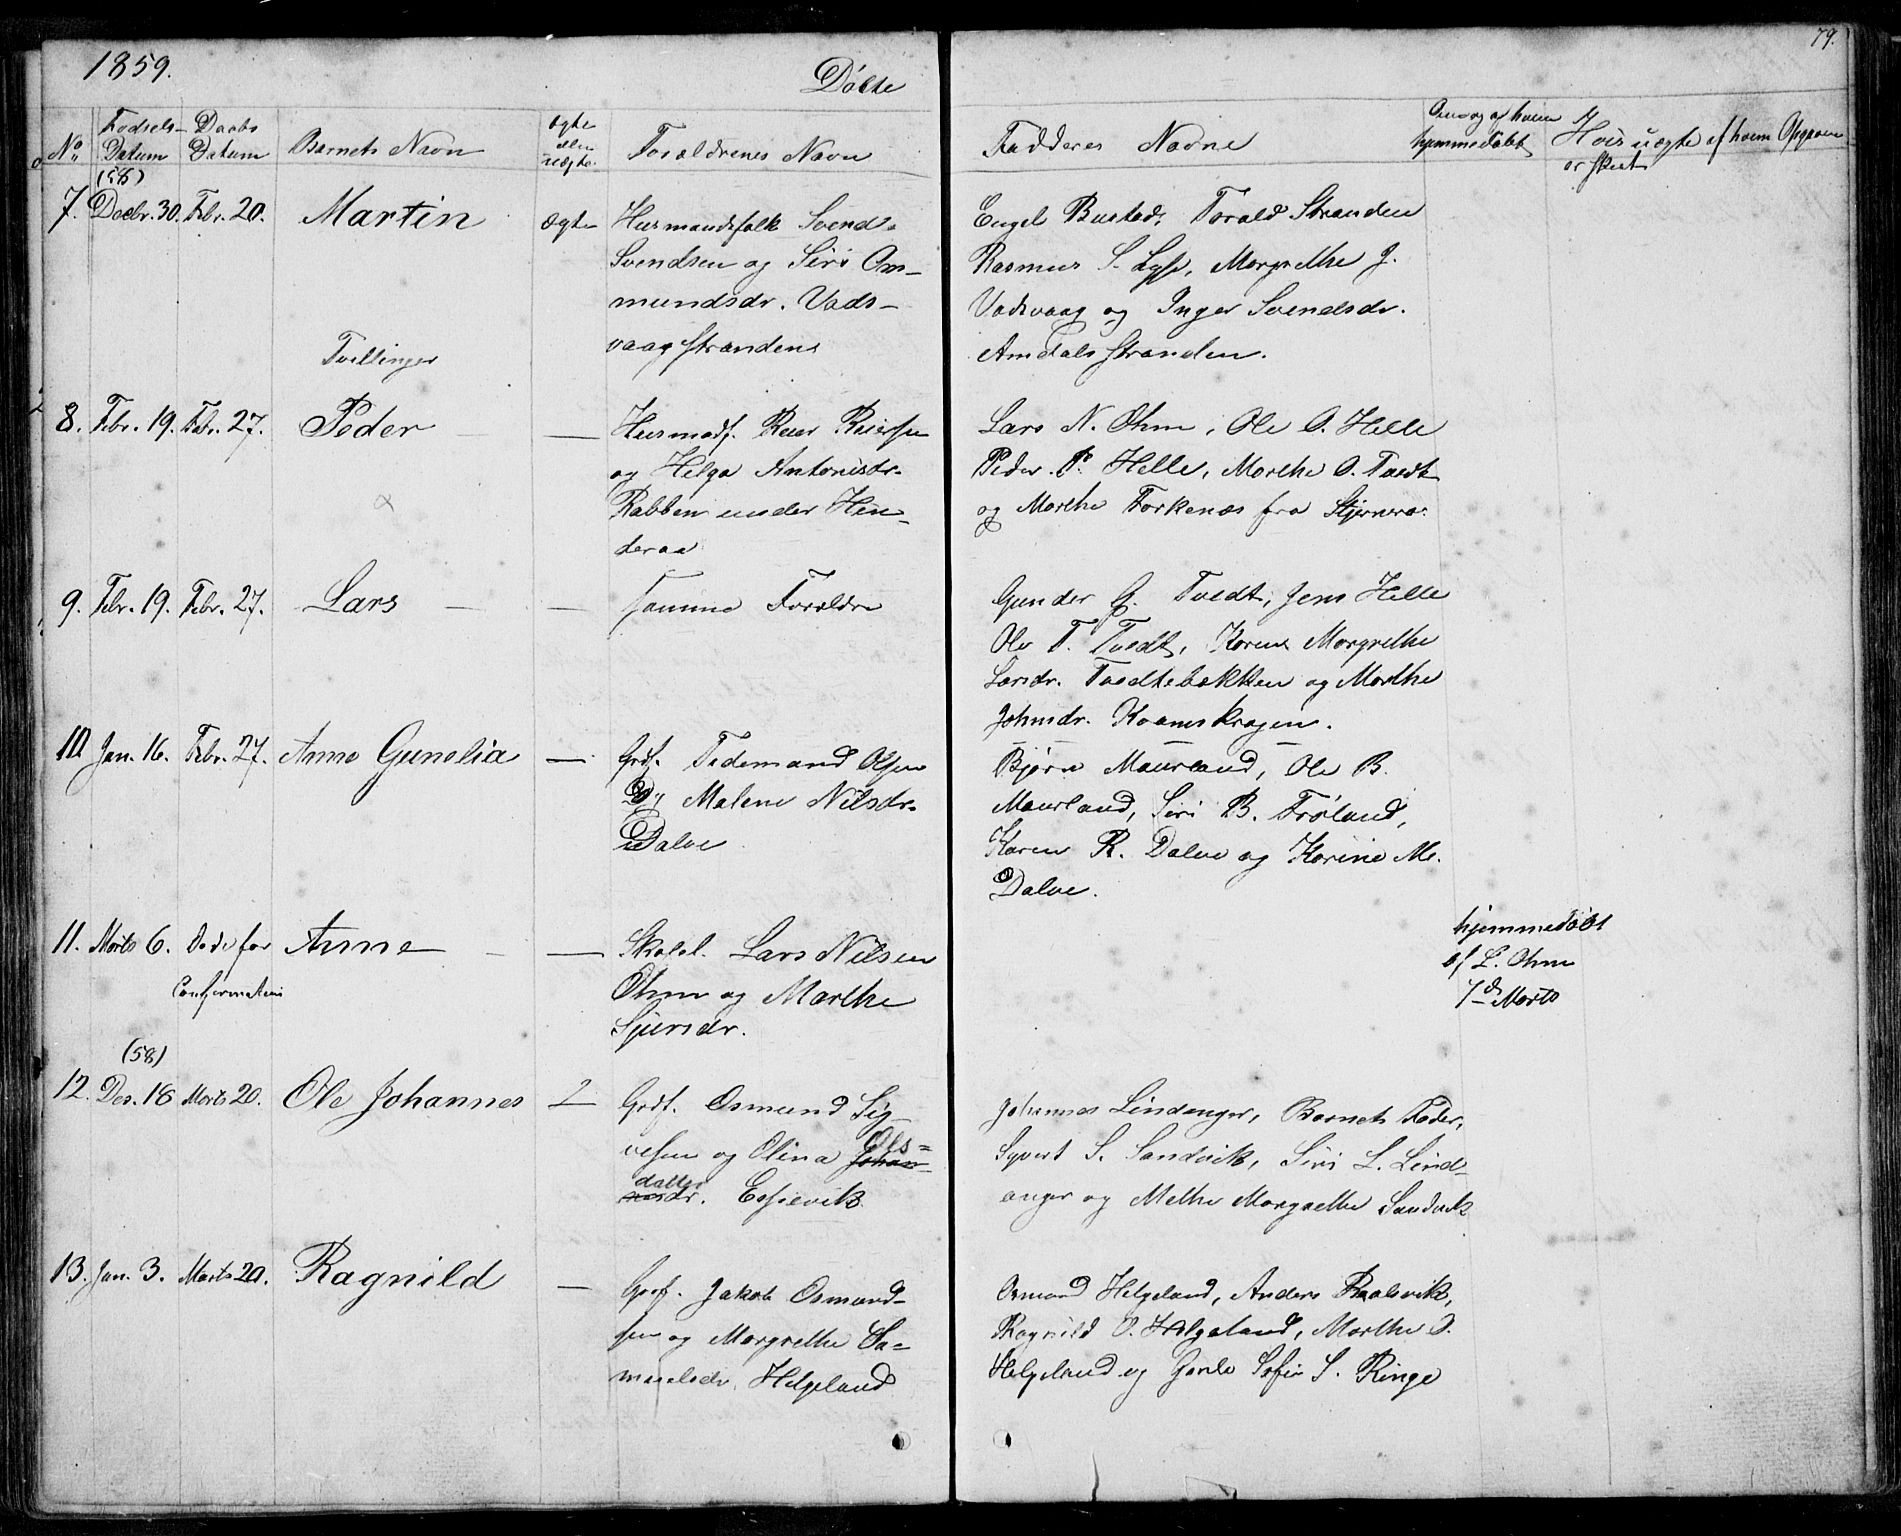 1859.
Döbte
79.
No
Fødsels- Datum
Daabs Datum
Barnets Navn
ægte eller uægte
Forældrenes Navn
Fadderes Navne
Om og af hvem hjemmedøbt
Hvis uægte af hvem Opgaven er skeet
(58)
7. Decbr. 30. Febr. 20. Martin ægte Husmandsfolk Svend
Svendsen og Siri Os-
mundsdr. Vads-
vaagstranden
Engel Bustad, Torald Stranden
Rasmus S. Lyse, Margrethe J.
Vadsvaag og Inger Svendsdr.
Amdalsstranden.
Tvillinger
8. Febr. 19. Febr. 27. Peder — — Husmdf. Reier Reiersen
og Helga Antonisdr.
Rabben under Hin-
deraa
Lars N. Ohm, Ole O. Helle
Peder P. Helle, Marthe O. Tvedt
og Marthe Torkenæs fra Stjernerø.
9. Febr. 19. Febr. 27. Lars — — samme Forældre
Gunder G. Tvedt, Jens Helle
Ole T. Tvedt, Karen Margrethe
Larsdr. Tvedtebakken og Marthe
Johnsdr. Kvamskragen.
10. Jan. 16. Febr. 27. Anne Gunelia — Grdf. Tidemand Olsen
og Malene Nilsdr.
Dalve
Bjørn Maurland, Ole B.
Maurland, Siri B. Frøland,
Karen R. Dalve og Karine M.
Dalve.
11. Marts 6. Døde før Confirmation Anne — — Skolel. Lars Nilsen
Ohm og Marthe
Sjursdr.
hjemmedöbt
af L. Ohm
7d Marts
(58)
12. Des. 18 Marts 20. Ole Johannes 2 Grdf. Osmund Sig-
vesen og Olina Johan- Ols=
nesdr. datter Essevik
Johannes Lindanger, Barnets Fader,
Syvert S. Sandvik, Siri L. Lind-
anger og Methe Margrethe Sandvik
13. Jan. 3. Marts 20. Ragnild — Grdf. Jakob Osmund-
sen og Margrethe Sa-
muelsdr. Helgeland
Osmund Helgeland, Anders Raalsvik,
Ragnild O. Helgeland, Marthe O.
Helgeland og Sofie S. Ringe